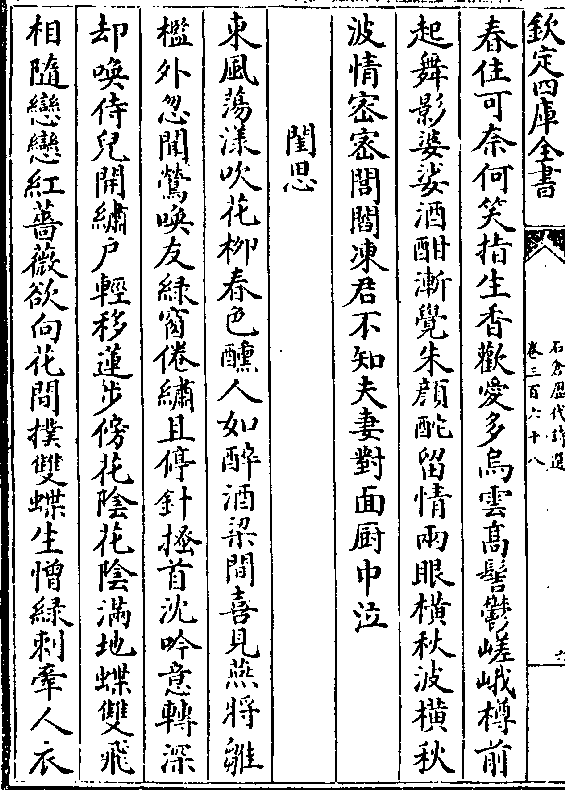 欽定四庫全書
石倉歷代詩選
卷三百六十八
六
春住可奈何笑指生香歡愛多烏雲髙髻鬱嵯峨樽前
起舞影婆娑酒酣漸覺朱顔酡留情兩眼橫秋波橫秋
波情密密閻閭凍君不知夫妻對面厨中泣
閨思
東風蕩漾吹花栁春色醺人如醉酒梁間喜見燕將雛
檻外忽聞鶯喚友綠窗倦繡且停針搔首沈吟意轉深
却喚侍兒開繡户輕移蓮步傍花陰花陰滿地蝶雙飛
相隨戀戀紅薔薇欲向花間撲雙蝶生憎綠刺牽人衣